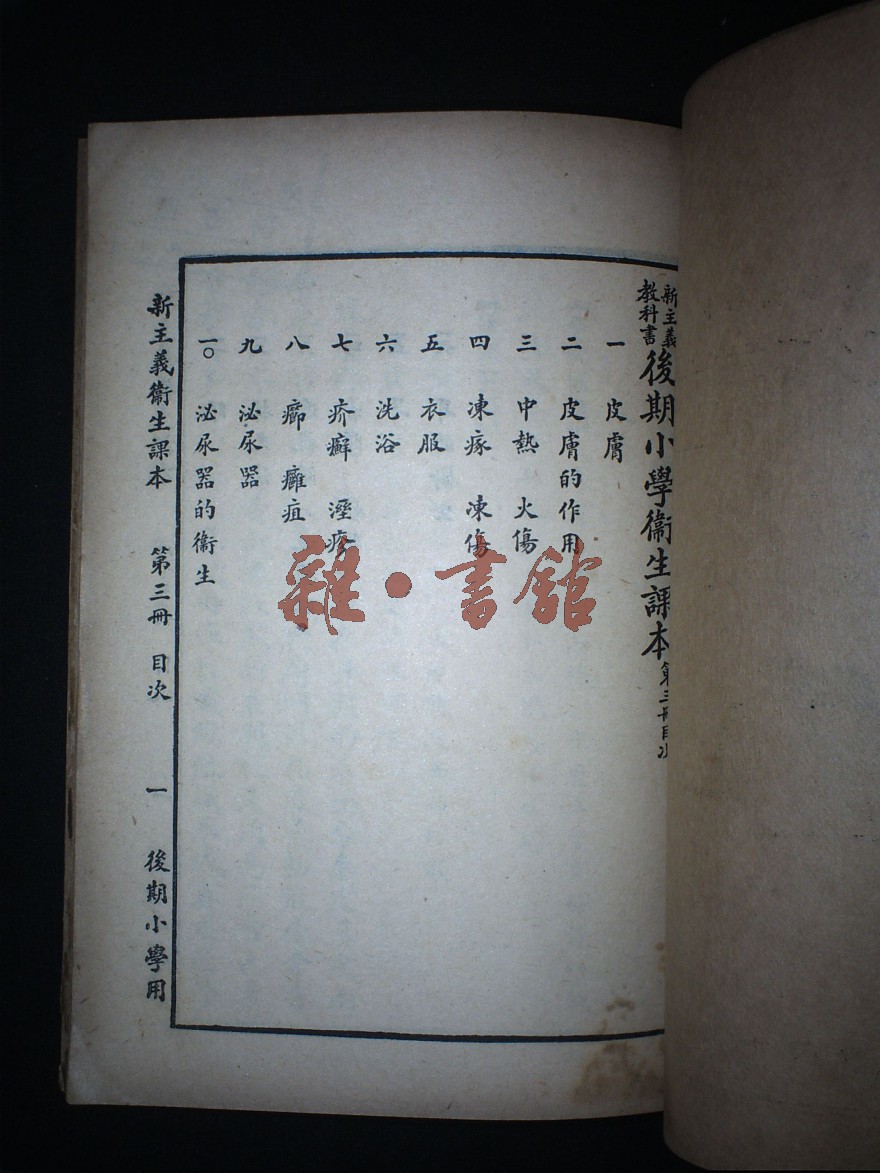 新主義教科書 後期小學衞生課本 第三冊目次
一 皮膚
二 皮膚的作用
三 中熱 火傷
四 凍瘃 凍傷
五 衣服
六 洗浴
七 疥癬 溼疹
八 癤 癰疽
九 泌尿器
一〇 泌尿器的衞生
新主義衞生課本 第三冊 目次 一 後期小學用
雜·書館